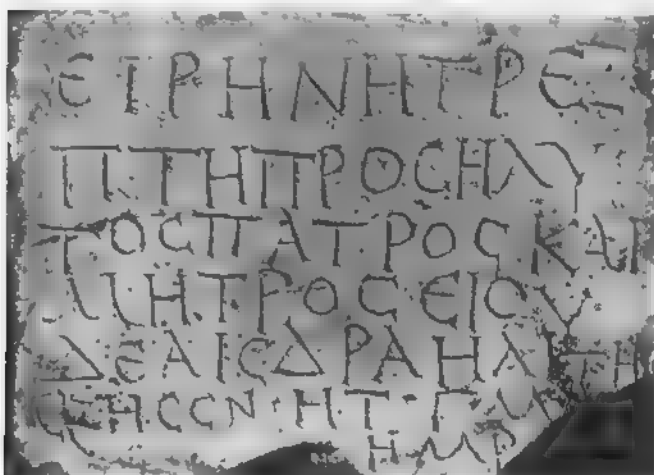 ΕΙΡΗΝΗΤΡΕΖ
ΠΤΗΠΡΟCΗΛΥ
ΤΟCΠΑΤΡΟCΚΑΙ
ΜΗΤΡΟCΕΙΟΥ
ΔΕΑΙCΔΡΑΗΛΙΤΗ
CΕΗCCΝ·ΗΤ·Γ·Μ
ΗΜΡ